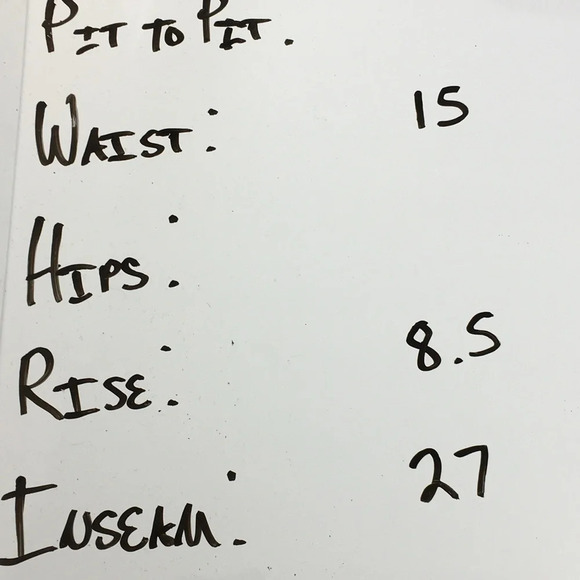 PIT TO PIT:
WAIST: 15
HIPS:
RISE: 8.5
INSEAM: 27